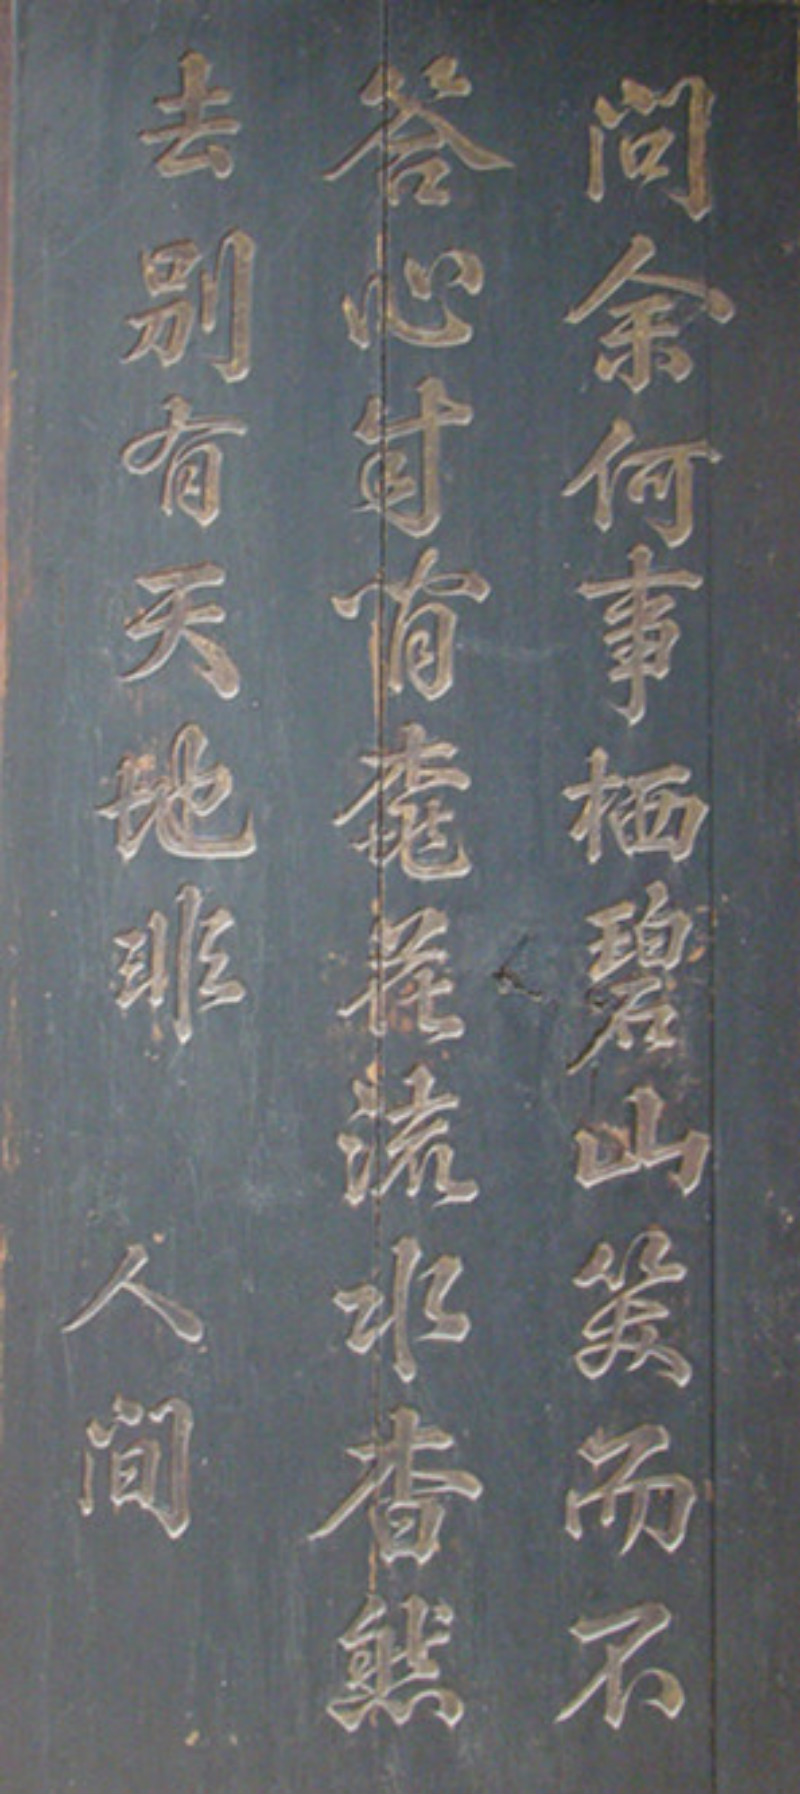 問余何事栖碧山笑而不
答心自有桃花流水杳然
去別有天地非人間